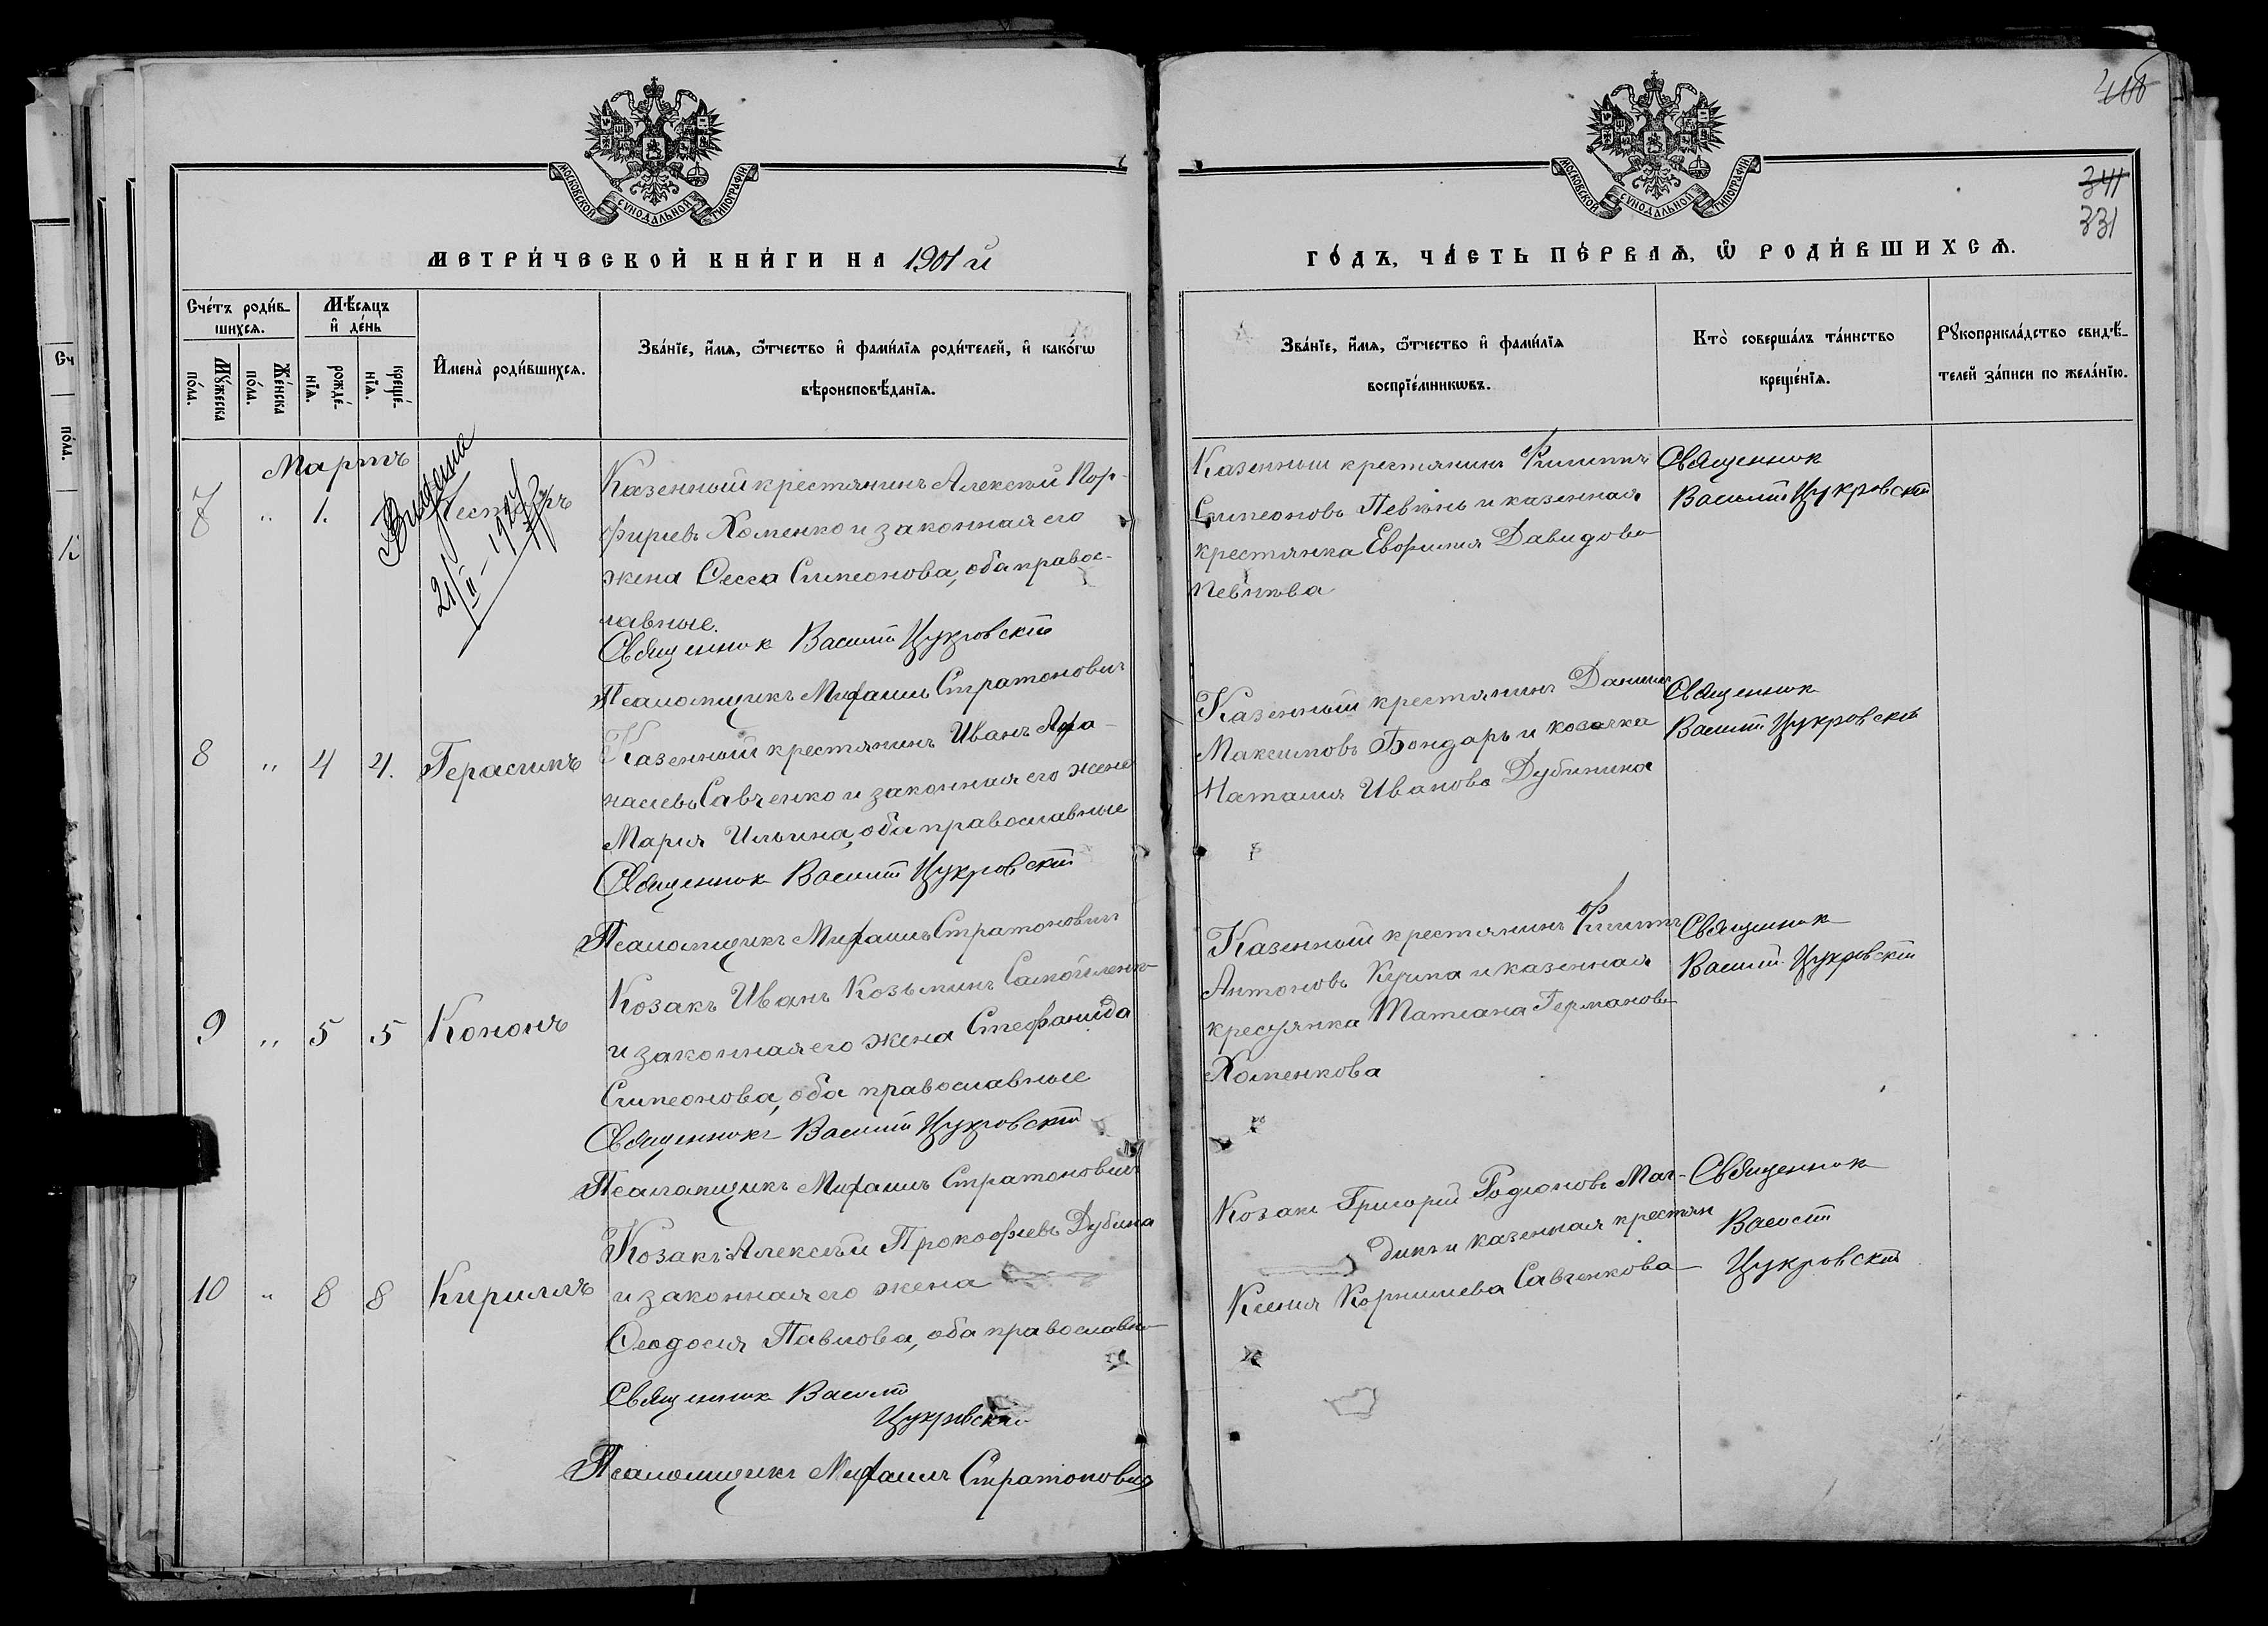 МОСКОВСКОЙ СѴНОДАЛЬНОЙ ТИПОГРАФІИ
МЕТРИ́ЧЕСКОЙ КНИ́ГИ НА 1901 й
Сче́тъ роди́в-
шихсѧ.
Мѣ́сяцъ
и҆ де́нь
Мꙋ́жеска
по́ла.
Же́нска
по́ла.
рожде́-
нїѧ.
креще́-
нїѧ.
И҆мена̀ роди́вшихсѧ.
Зва́нїе, и҆́мѧ, ѻ҆́тчество и҆ фами́лїѧ роди́телей, и҆ како́гѡ
вѣроисповѣ́данїѧ.
Мартъ
7 " 1.
21/II - 1924
Казенный крестянинъ Алексѣй Пор-
фиріевъ Хоменко и законная его
жена Ѳекла Симеонова, оба правос-
лавные.
Священник Василій Цукровскій
Псаломщикъ Михаилъ Стратоновичъ
8 " 4 4. Герасимъ
Казенный крестянинъ Иванъ Афа-
насіевъ Савченко и законная его жена
Марія Ильина, оба православные
Священник Василій Цукровскій
Псаломщикъ Михаилъ Стратоновичъ
9 " 5 5 Кононъ
Козакъ Иванъ Козьминъ Самойленко
и законная его жена Стефанида
Симеонова, оба православные
Священникъ Василій Цукровскій
Псаломщикъ Михаилъ Стратоновичъ
10 " 8 8 Кириллъ
Козакъ Алексѣй Прокофіевъ Дубина
и законная его жена
Ѳеодосія Павлова, оба православн
Священник Василій
Цукровскій
Псаломщикъ Михаилъ Стратоновичъ
341
331
МОСКОВСКОЙ СѴНОДАЛЬНОЙ ТИПОГРАФІИ
ГО́ДЪ, ЧА́СТЬ ПЕ́РВАѦ, Ѡ҆ РОДИ́ВШИХСѦ.
Зва́нїе, и҆́мѧ, ѻ҆́тчество и҆ фами́лїѧ
воспрїе́мникѡвъ.
Кто̀ соверша́лъ та́инство
креще́нїѧ.
Рꙋкоприкла́дство свидѣ́-
телей за́писи по жела́нїю.
Казенный крестянинъ Филиппъ
Симеоновъ Певень и казенная
крестянка Евфимія Давидова
Певнева
Священник
Василій Цукровскій
Казенный крестянинъ Даниилъ
Максимовъ Бондарь и козачка
Наталия Иванова Дубинина
Священник
Василій Цукровскій
Казенный крестянинъ Филиппъ
Антоновъ Кушка и казенная
крестянка Татіана Германова
Хоменкова
Священник
Василій Цукровскій
Козакъ Григорій Родіоновъ Мог-
дикъ и казенная крестян
Ксенія Корниліева Савченкова
Священник
Василій
Цукровскій